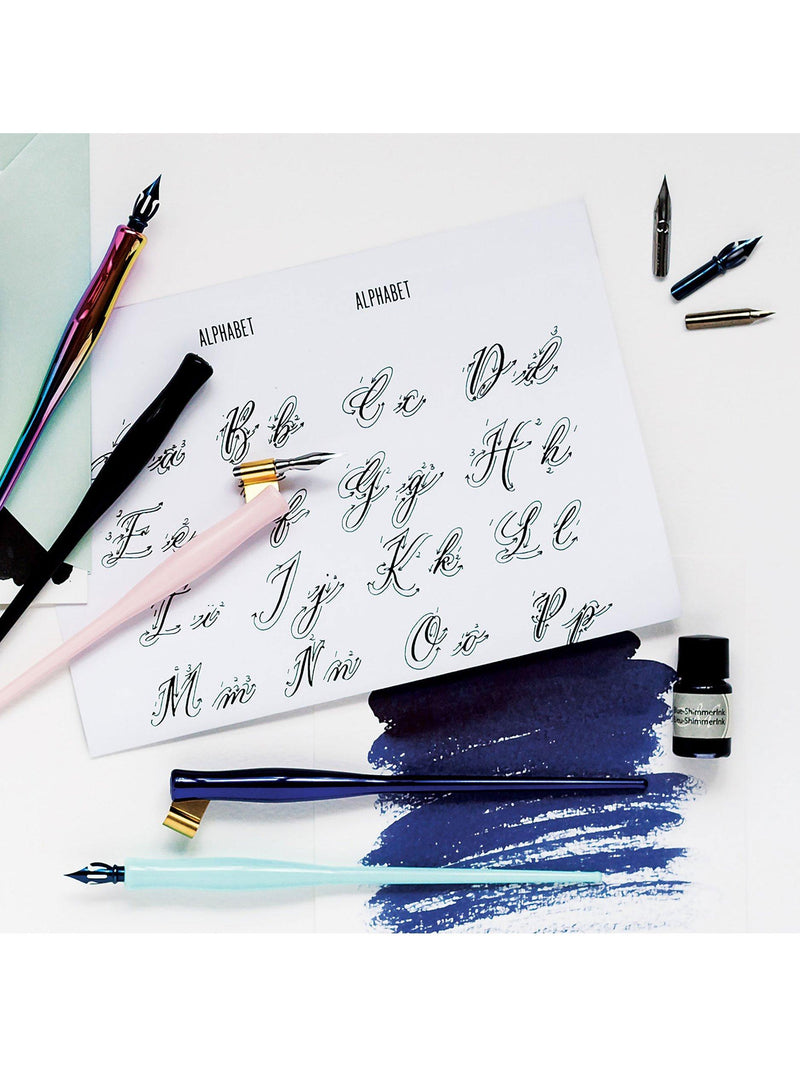 ALPHABET ALPHABET
a B b C c D d
E e f G g H h
I i J j K k L l
M m N n O o P p
Blue-ShimmerInk